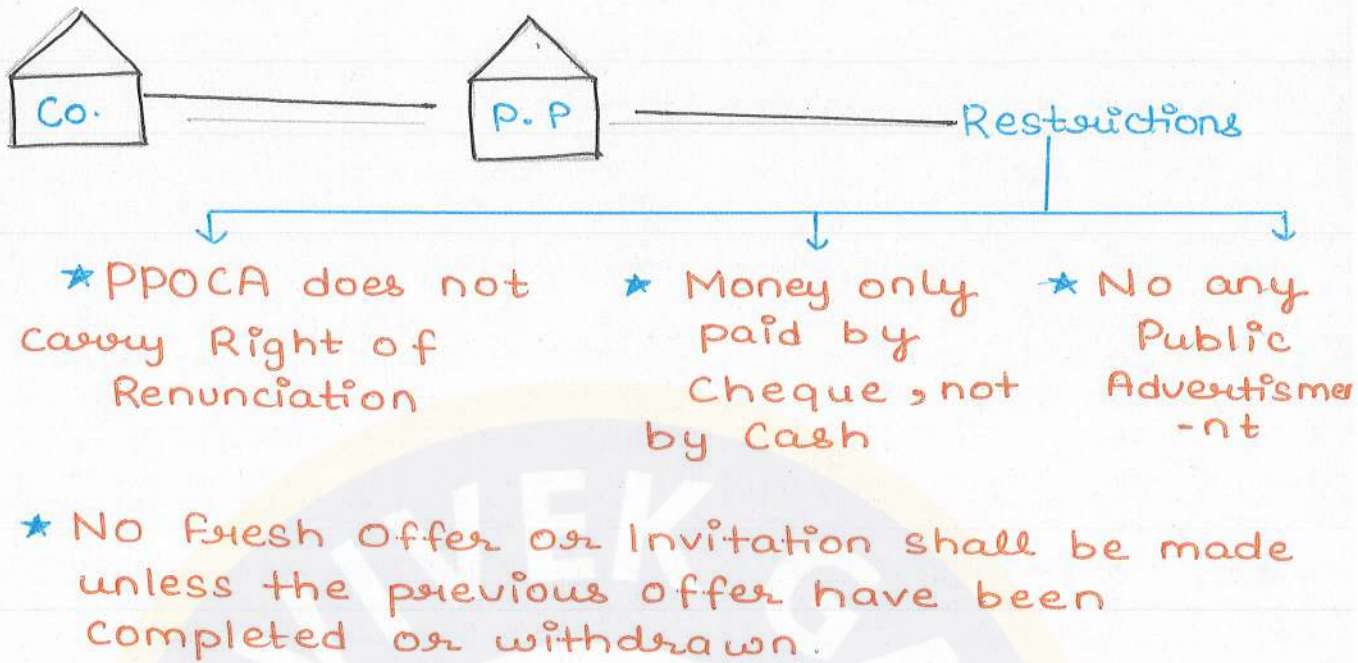 Co.
P.P
Restrictions
★ PPOCA does not
carry Right of
Renunciation
★ Money only
paid by
Cheque, not
by Cash
★ No any
Public
Advertisme
-nt
★ No fresh Offer or Invitation shall be made
unless the previous offer have been
completed or withdrawn.
VIVEK G